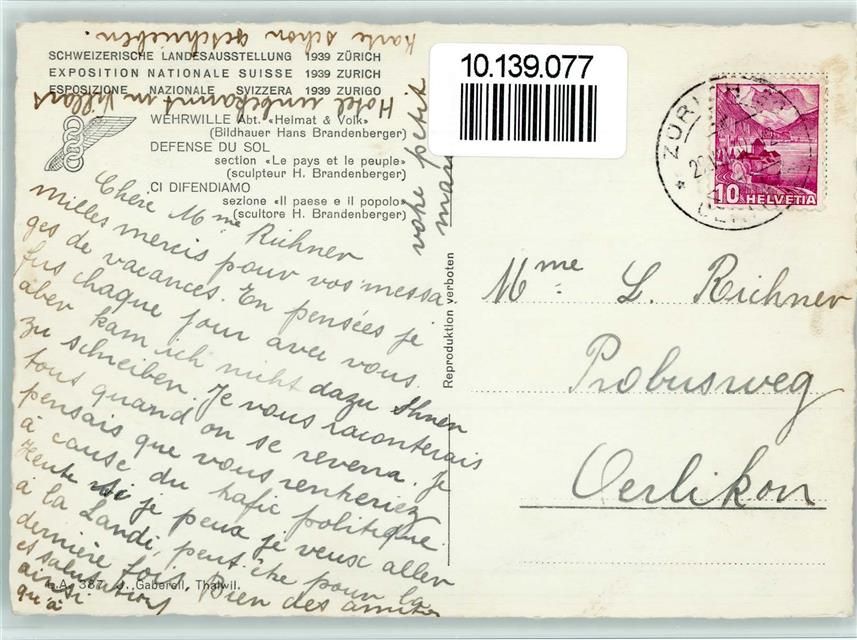 Karte schon geschrieben.
Hotel unbekannt in Villars
SCHWEIZERISCHE LANDESAUSSTELLUNG 1939 ZÜRICH
EXPOSITION NATIONALE SUISSE 1939 ZURICH
ESPOSIZIONE NAZIONALE SVIZZERA 1939 ZURIGO
WEHRWILLE Abt. «Heimat & Volk»
(Bildhauer Hans Brandenberger)
DEFENSE DU SOL
section «Le pays et le peuple»
(sculpteur H. Brandenberger)
CI DIFENDIAMO
sezione «Il paese e il popolo»
(scultore H. Brandenberger)
Chère Mme Richner
Milles mercis pour vos messa
ges de vacances. En pensées je
fus chaque jour avec vous.
aber kam ich nicht dazu Ihnen
zu schreiben. Je vous raconterais
tous quand on se reverra. Je
pensais que vous rentreriez
à cause du trafic politique.
Heute si je peux je veux aller
à la Landi, peut être pour la
dernière fois. Bien des amitiés
et salutations
ainsi
qu'à
votre petit
mari
L.A. 387 J. Gaberell, Thalwil.
Reproduktion verboten
10.139.077
ZÜRICH
OERLIKON
10 HELVETIA
Mme L. Richner
Probusweg
Oerlikon